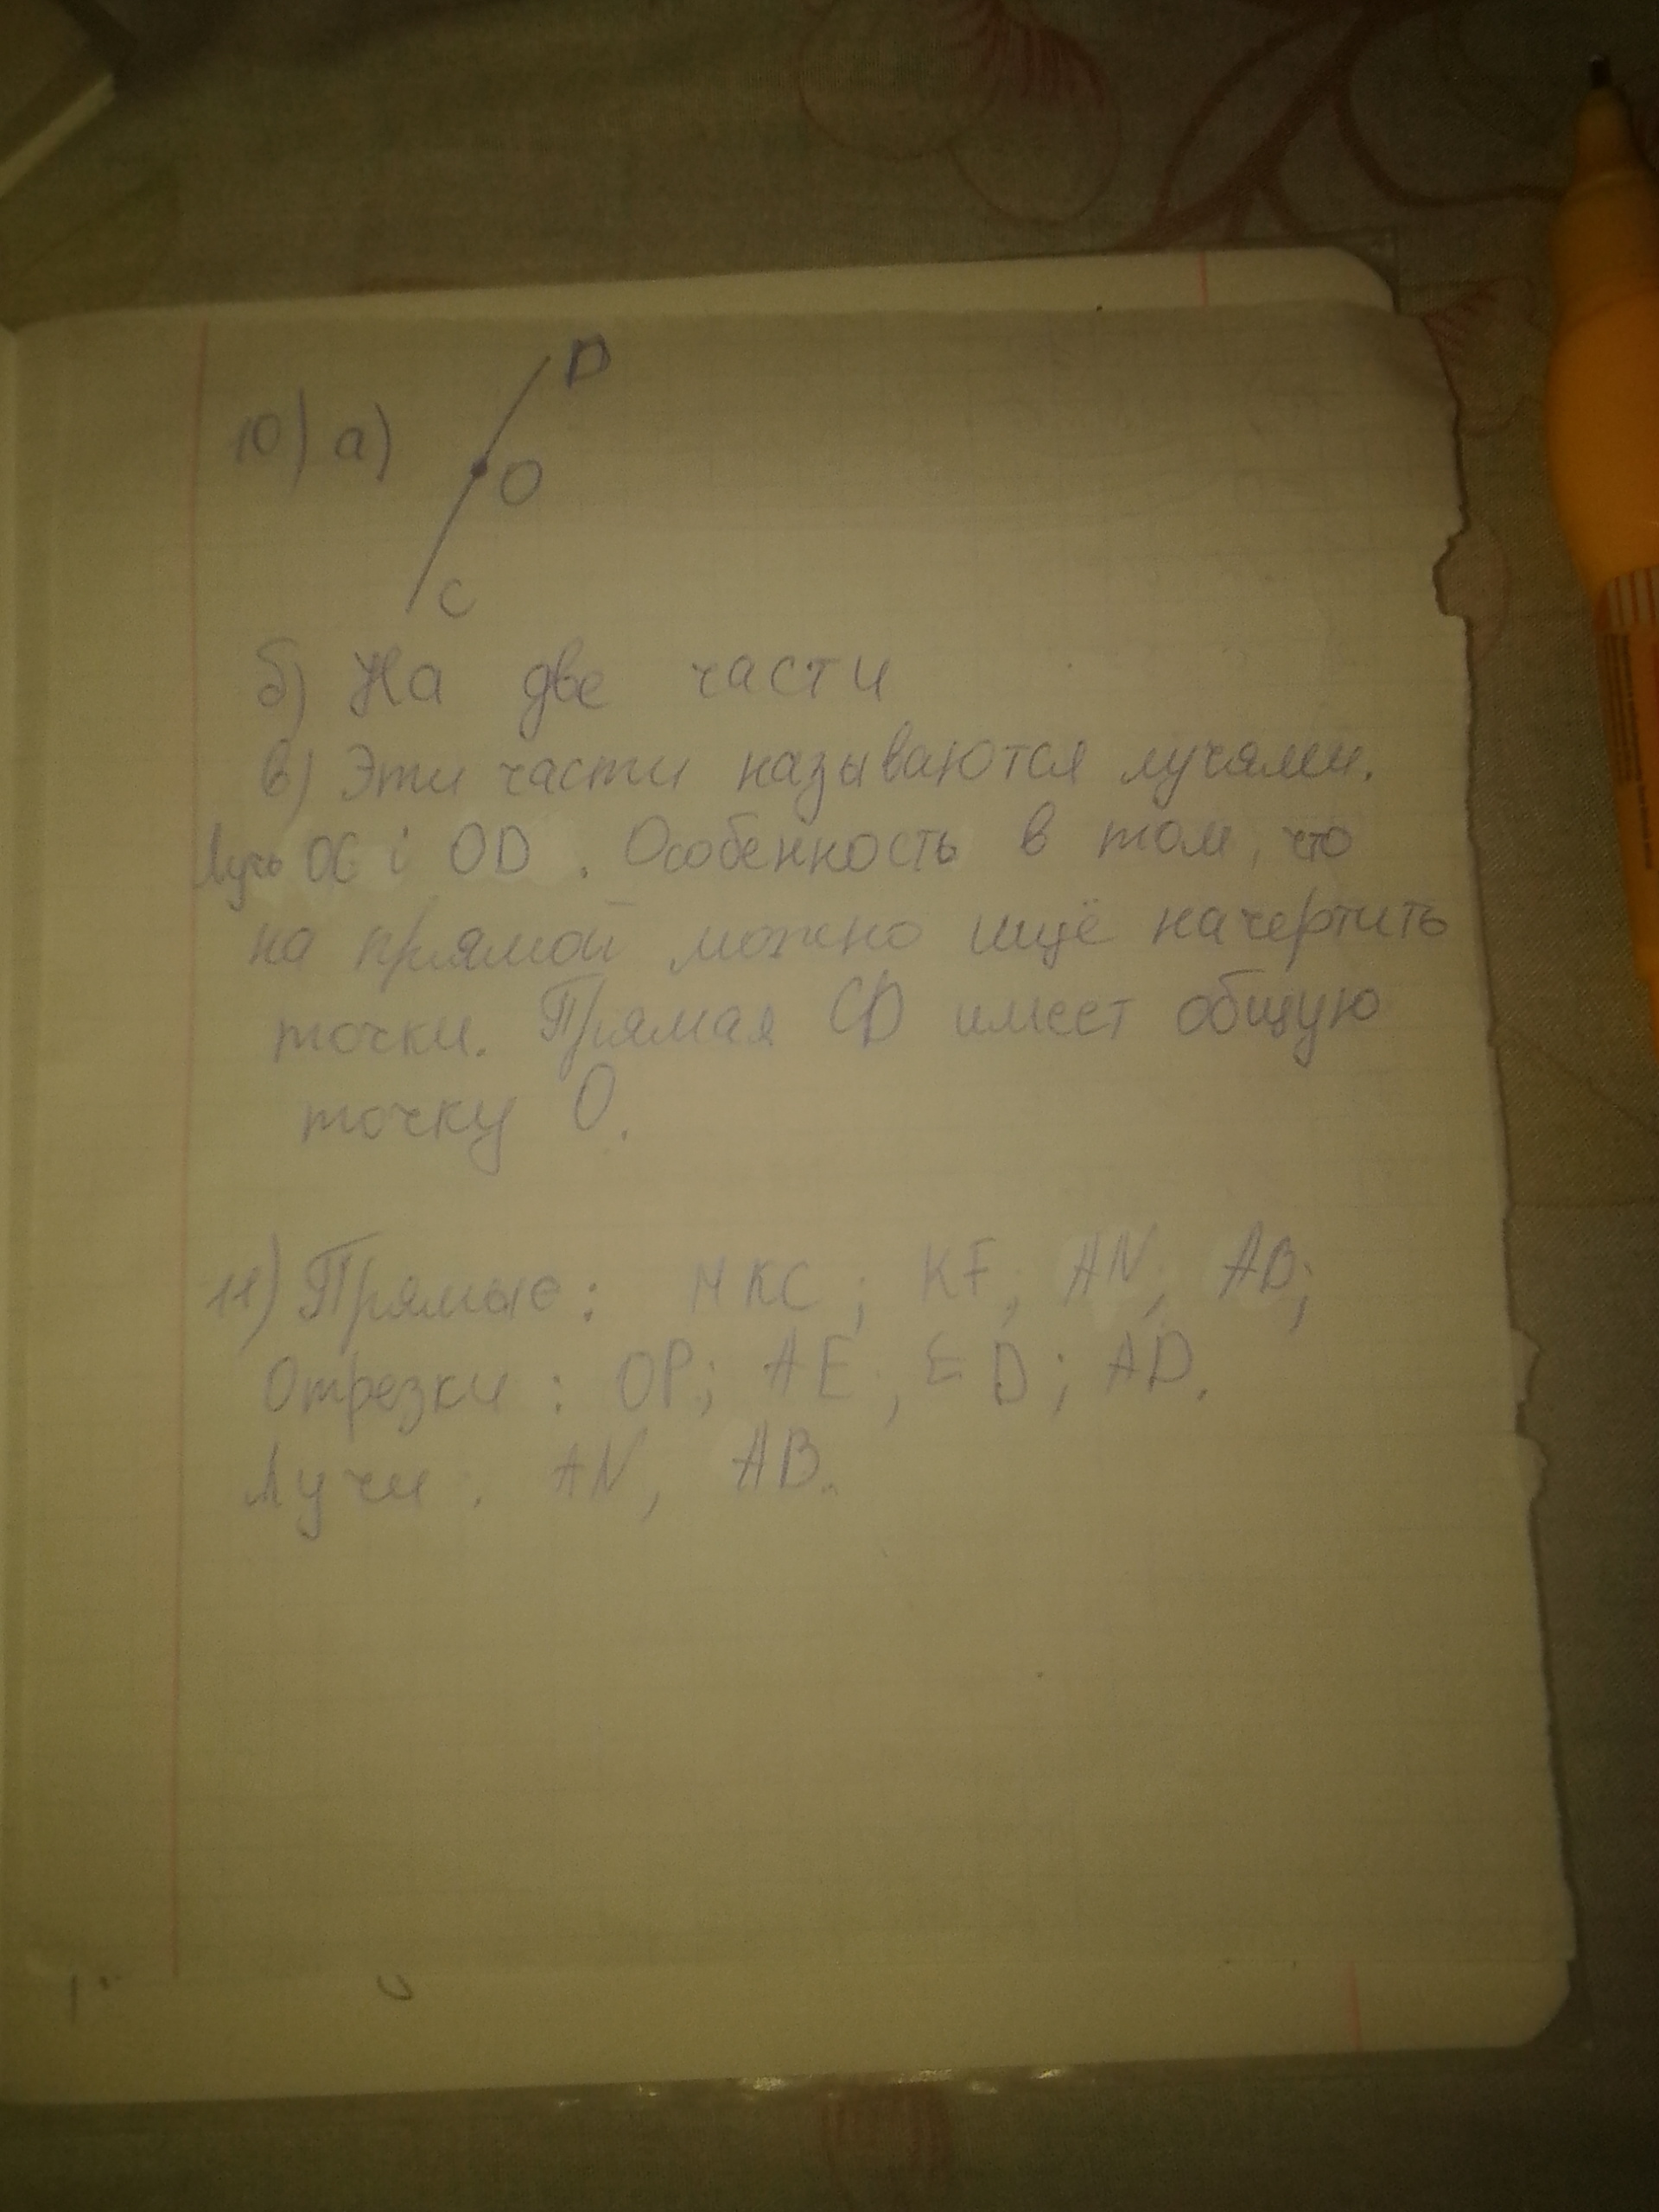 10) а)
D
O
C
б) На две части
в) Эти части называются лучями.
Лучь OC i OD. Особенность в том, что
на прямой можно ищё начертить
точки. Прямая CD имеет общую
точку O.
11) Прямые: MKC; KF; AN; AB;
Отрезки: OP; AE; ED; AD.
Лучи: AN, AB.